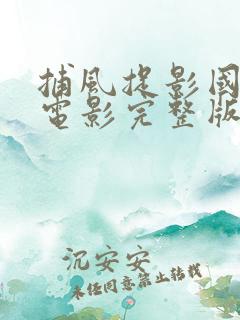 捕风捉影國
電影完整版
沉安安
未任同意禁止转载